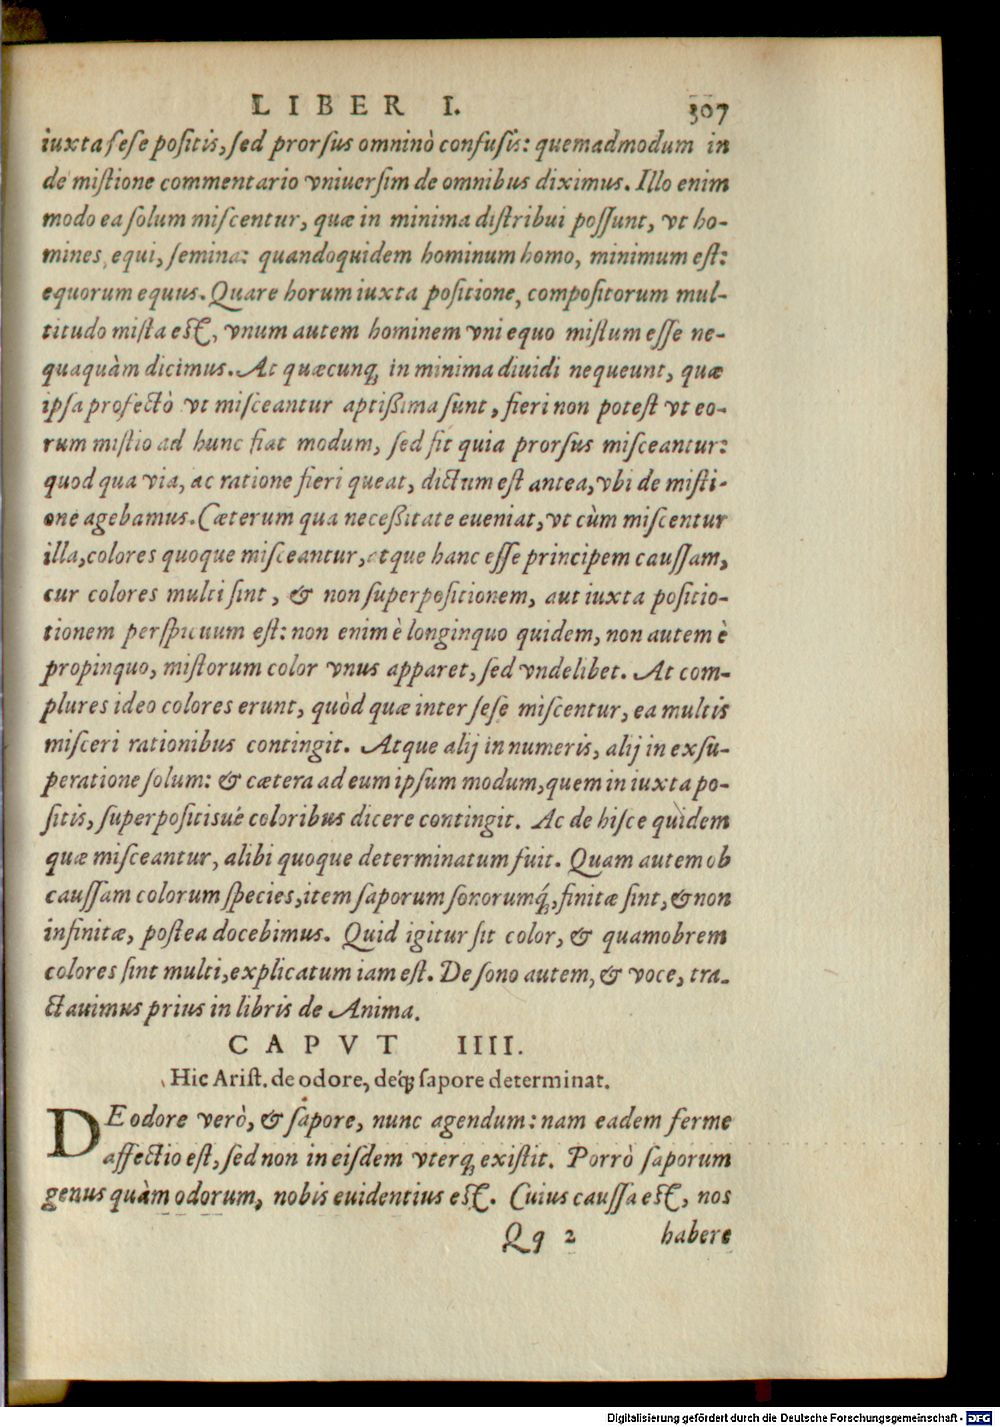 LIBER I. 307
iuxta sese positis, sed prorsus omninò confusis: quemadmodum in
de mistione commentario vniuersim de omnibus diximus. Illo enim
modo ea solum miscentur, quæ in minima distribui possunt, vt ho-
mines, equi, semina: quandoquidem hominum homo, minimum est:
equorum equus. Quare horum iuxta positione, compositorum mul-
titudo mista est, vnum autem hominem vni equo mistum esse ne-
quaquàm dicimus. At quæcunq; in minima diuidi nequeunt, quæ
ipsa profectò vt misceantur aptißima sunt, fieri non potest vt eo-
rum mistio ad hunc fiat modum, sed fit quia prorsus misceantur:
quod qua via, ac ratione fieri queat, dictum est antea, vbi de misti-
one agebamus. Cæterum qua neceßitate eueniat, vt cùm miscentur
illa, colores quoque misceantur, atque hanc esse principem caussam,
cur colores multi sint, & non superpositionem, aut iuxta positio-
tionem perspicuum est: non enim è longinquo quidem, non autem è
propinquo, mistorum color vnus apparet, sed vndelibet. At com-
plures ideo colores erunt, quòd quæ inter sese miscentur, ea multis
misceri rationibus contingit. Atque alij in numeris, alij in exsu-
peratione solum: & cætera ad eum ipsum modum, quem in iuxta po-
sitis, superpositisué coloribus dicere contingit. Ac de hisce quidem
quæ misceantur, alibi quoque determinatum fuit. Quam autem ob
caussam colorum species, item saporum sonorumq́;, finitæ sint, & non
infinitæ, postea docebimus. Quid igitur sit color, & quamobrem
colores sint multi, explicatum iam est. De sono autem, & voce, tra-
ctauimus prius in libris de Anima.
CAPVT IIII.
Hic Arist. de odore, deq́; sapore determinat.
DE odore verò, & sapore, nunc agendum: nam eadem ferme
affectio est, sed non in eisdem vterq; existit. Porrò saporum
genus quàm odorum, nobis euidentius est. Cuius caussa est, nos
Qq 2 habere
Digitalisierung gefördert durch die Deutsche Forschungsgemeinschaft - DFG